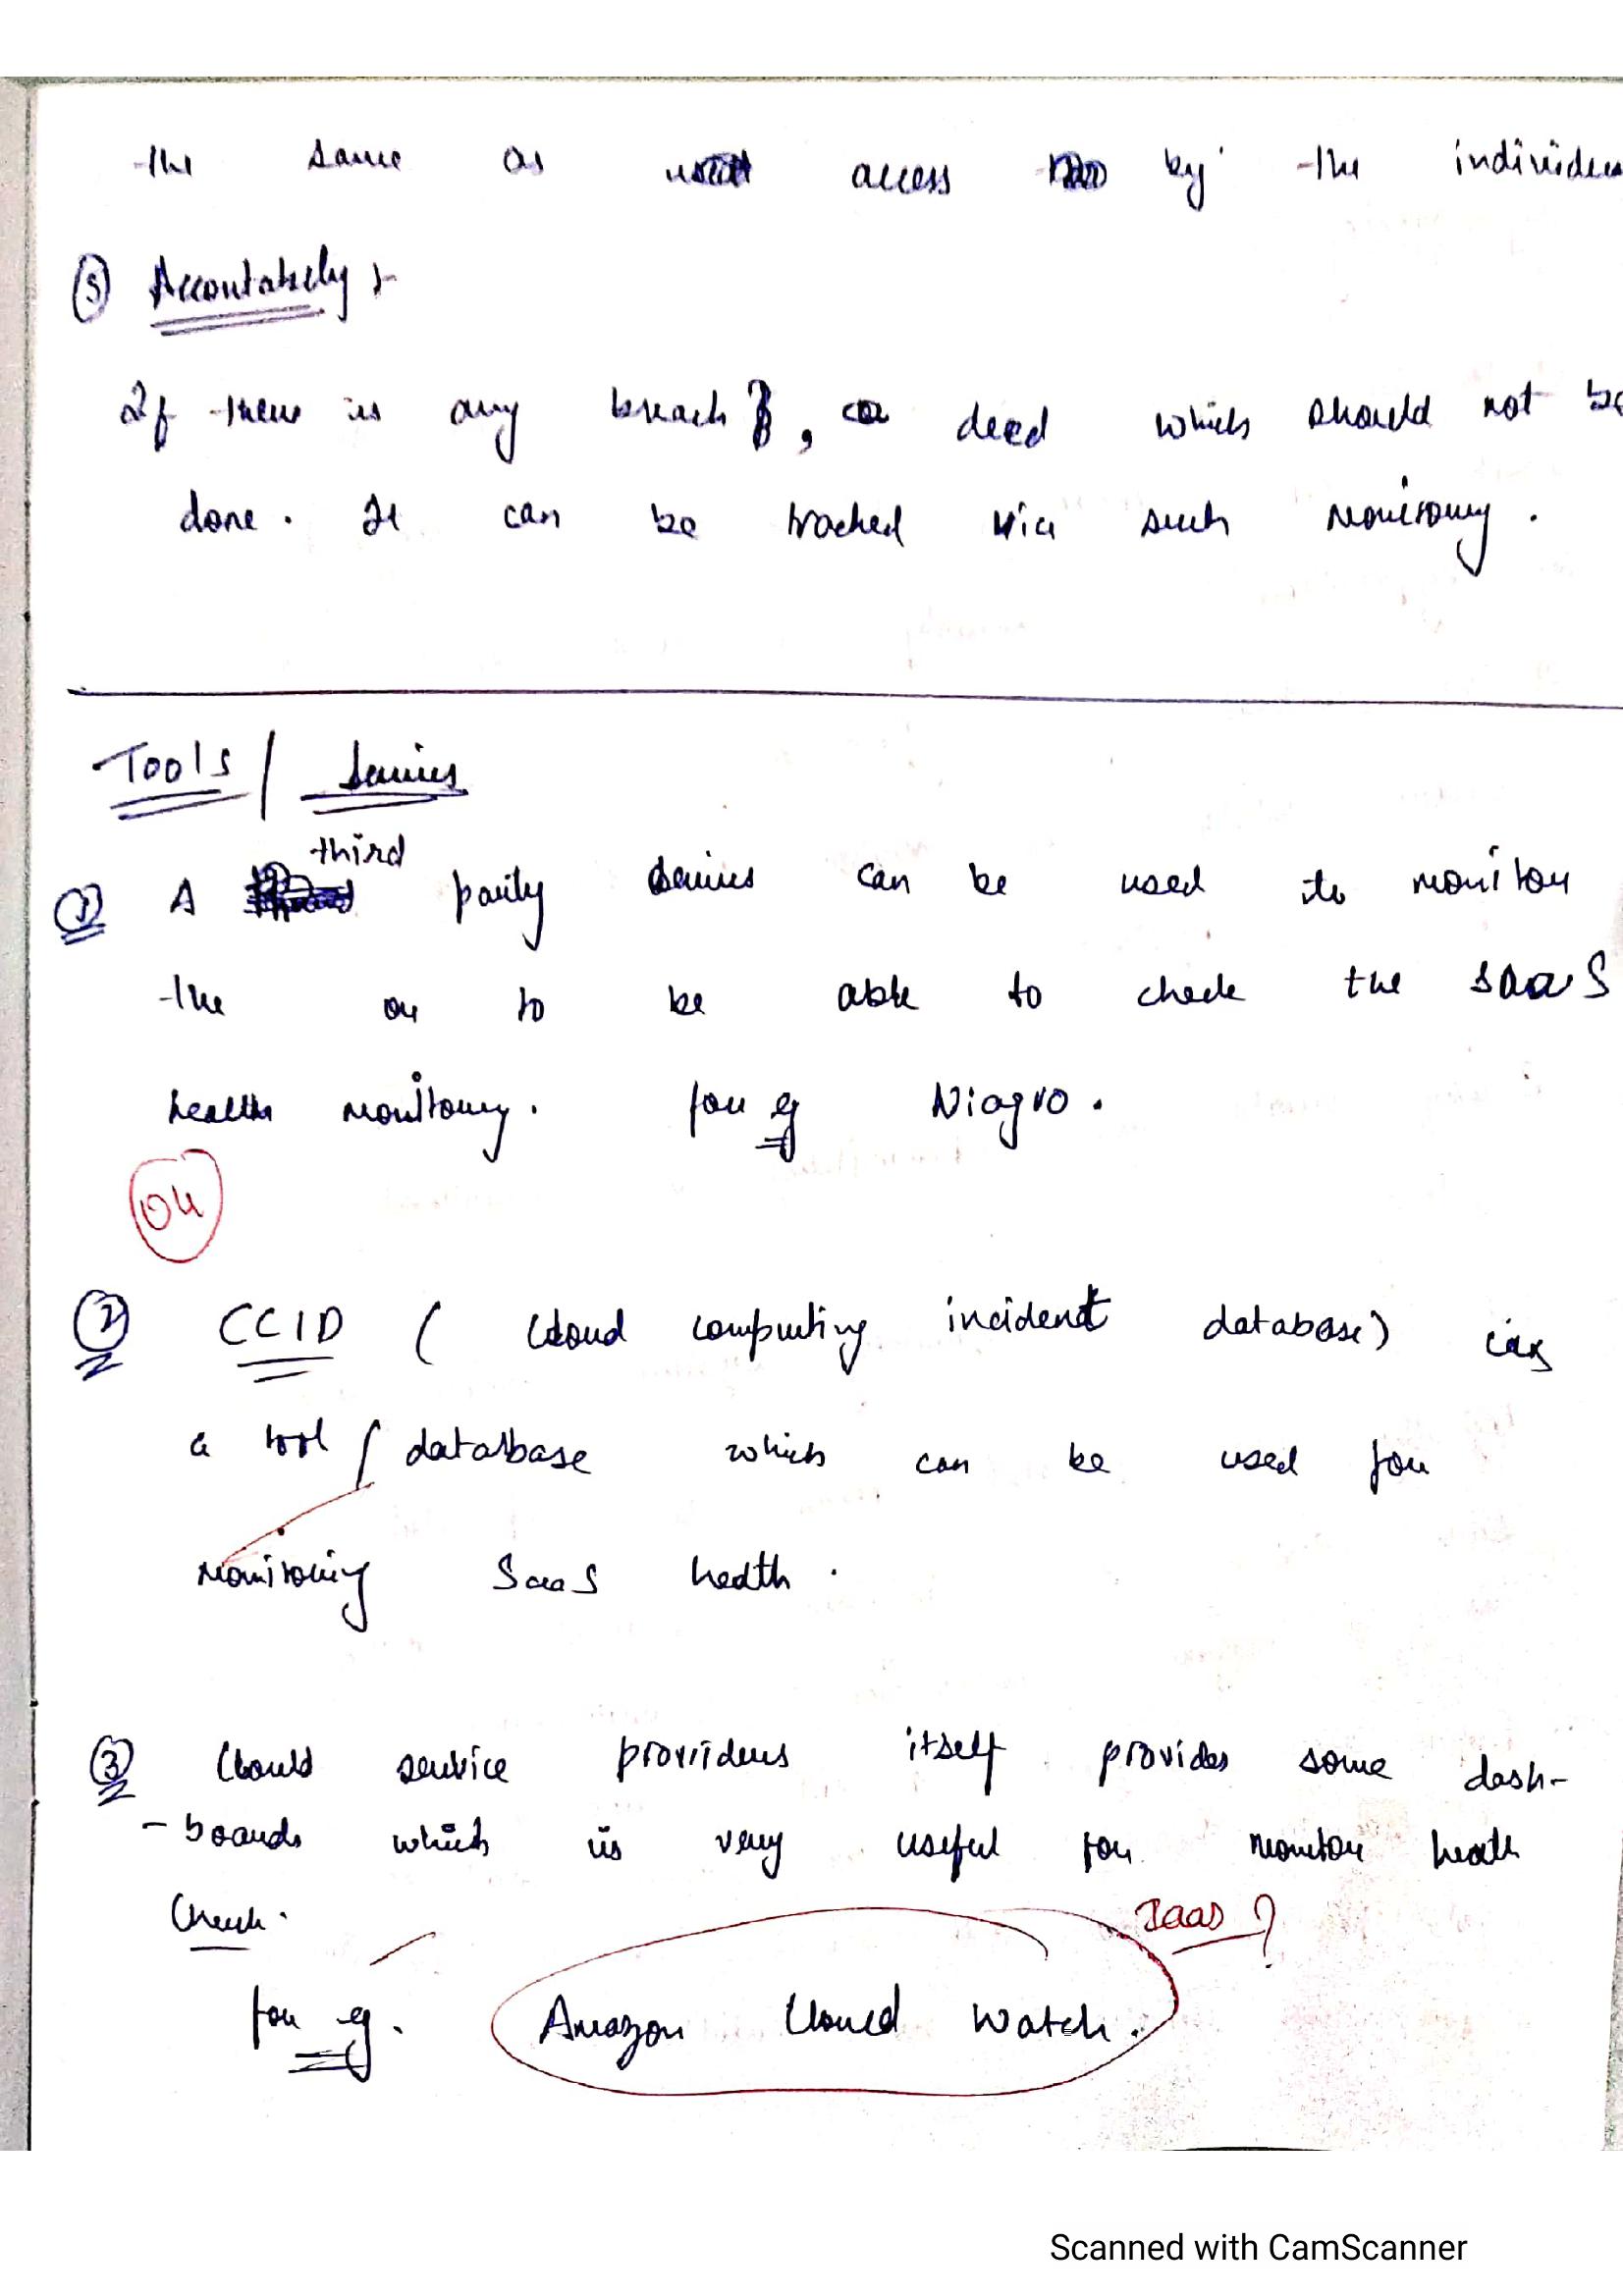 the same as access by the
⑤ Accountabely :-
If there is any breach, deed which should not be
done. It can be tracked via such monitoring.
Tools / Servies
third
① A party servies can be used to monitor
the or to be able to check the SaaS
health monitoring. for eg Niagro.
04
② CCID ( Cloud computing incident database) is
a tool / database which can be used for
monitoring SaaS health.
③ Clould service providers itself provides some dash-
- boards which is very useful for monitor health
Check.
IaaS ?
for eg. Amazon Cloud Watch.
Scanned with CamScanner